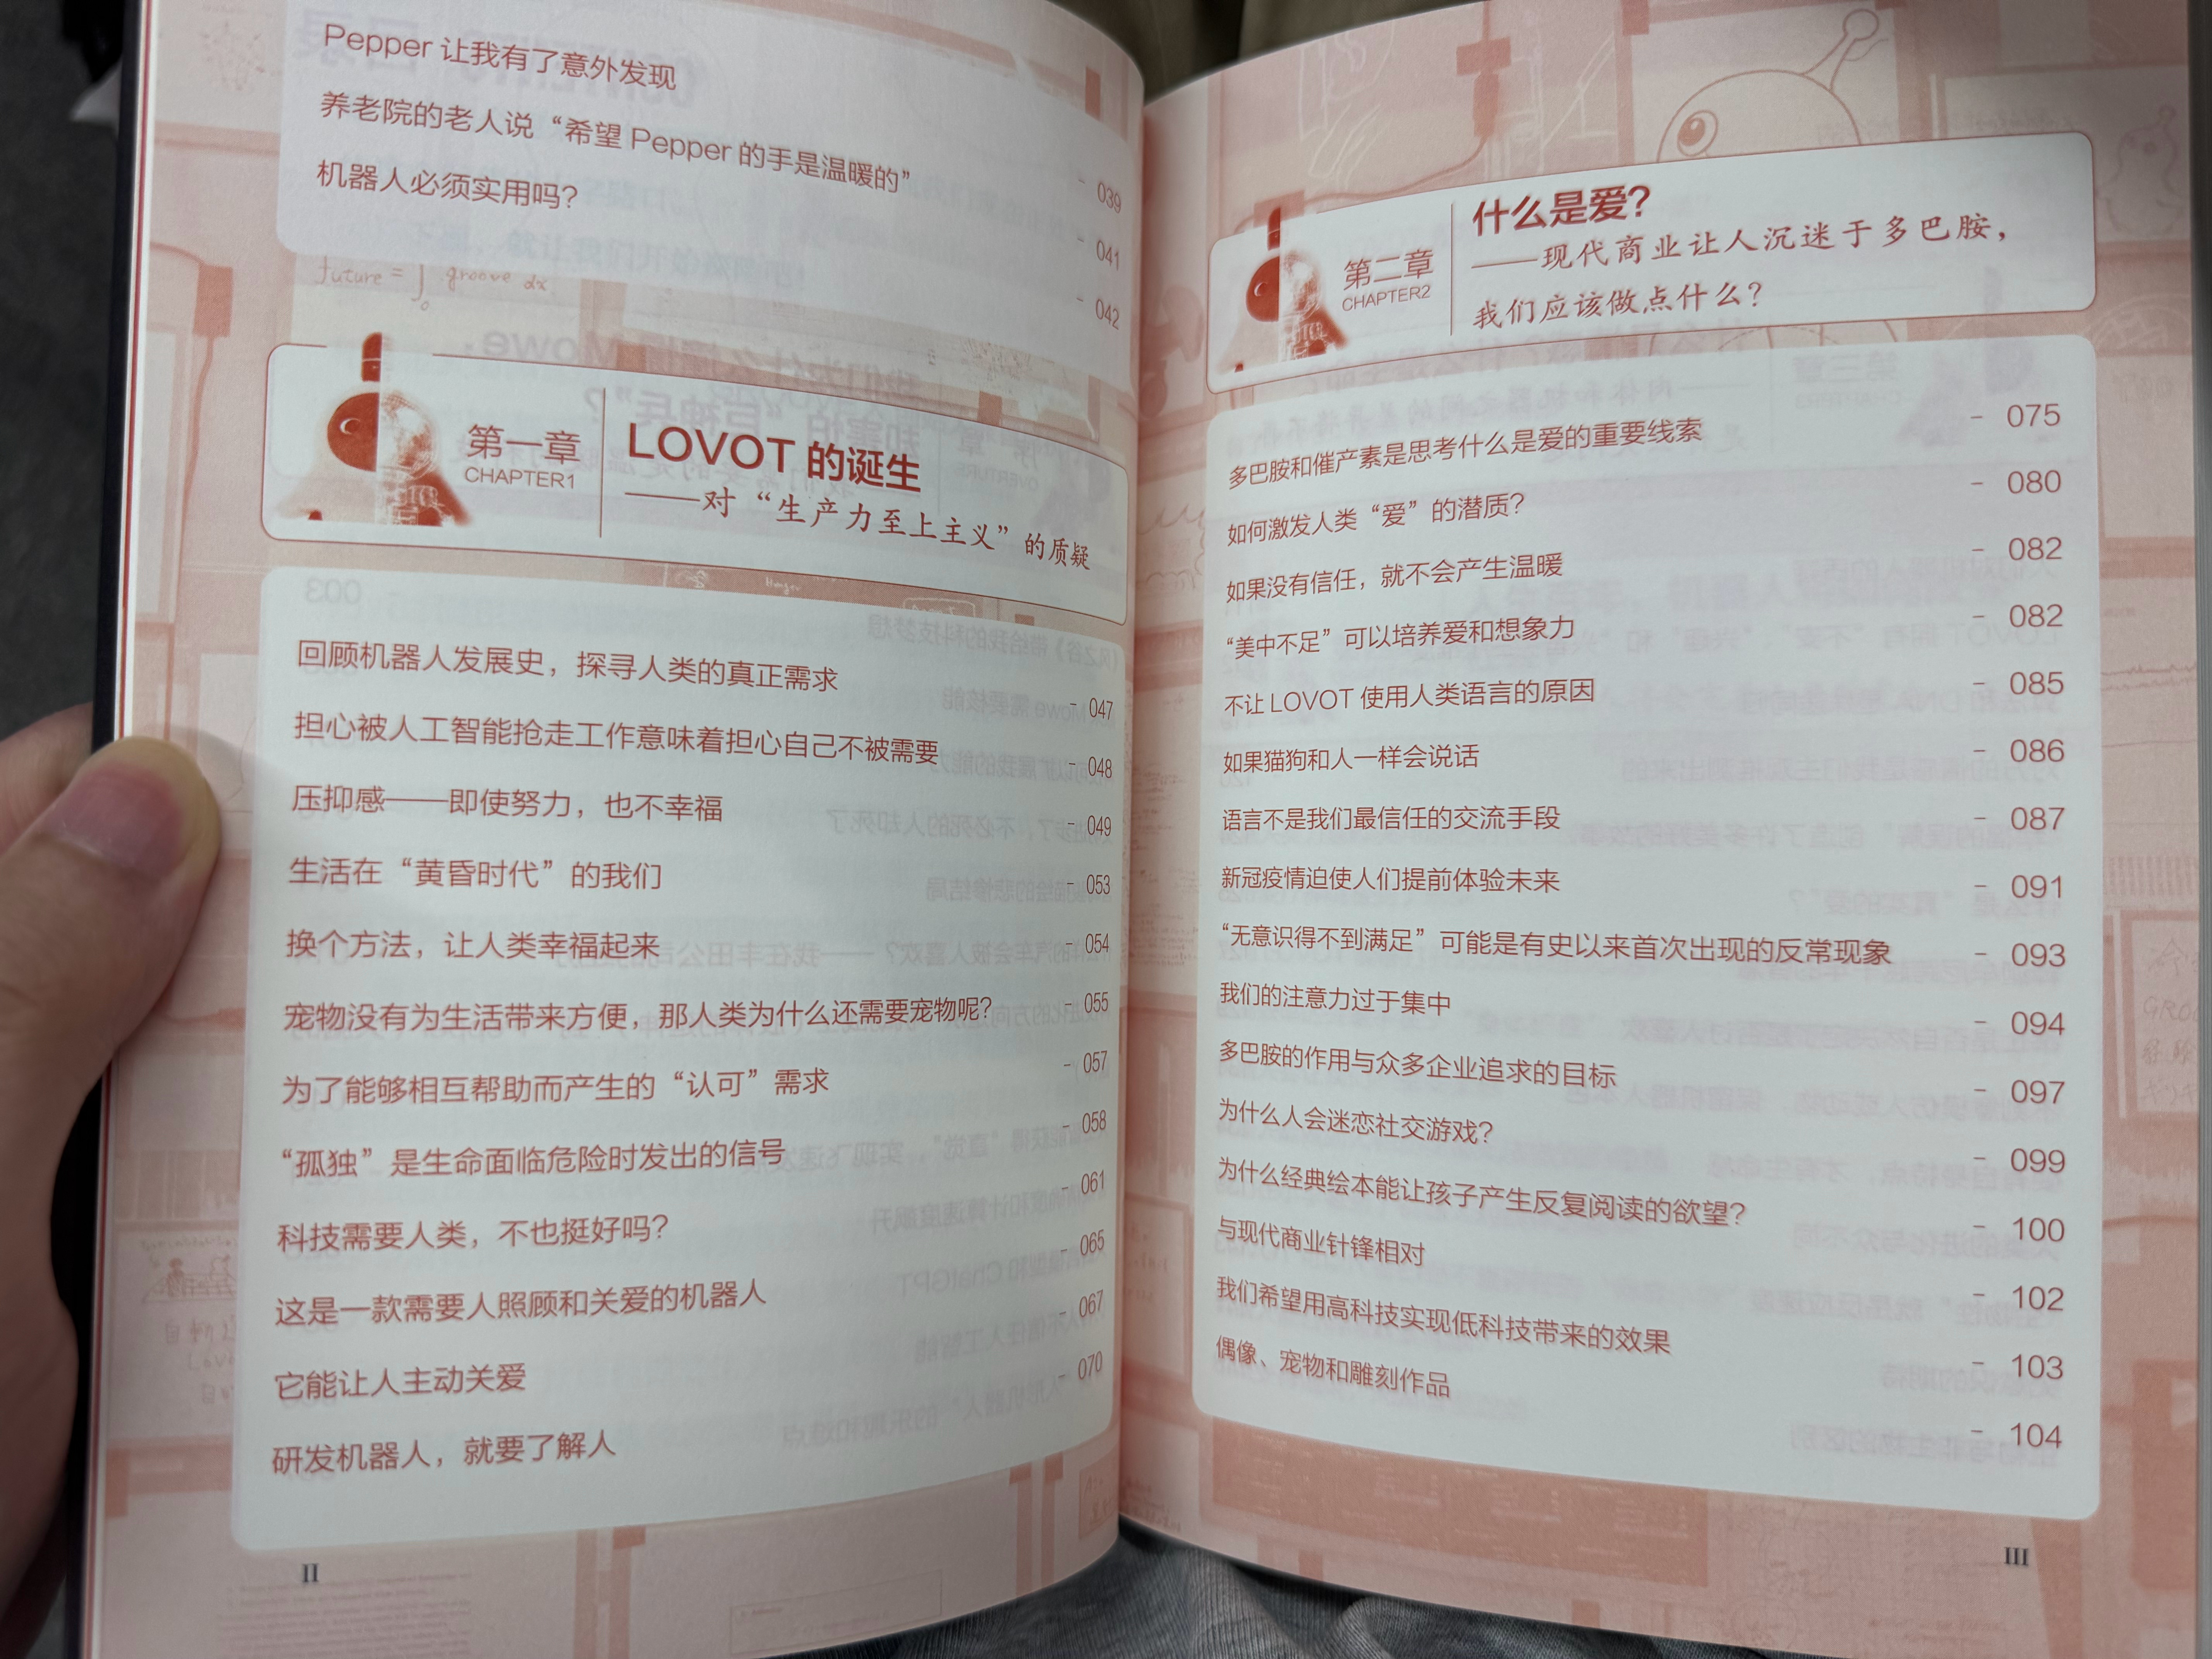 Pepper 让我有了意外发现 - 039
养老院的老人说“希望 Pepper 的手是温暖的” - 041
机器人必须实用吗？ - 042
future = ∫₀ groove dx.
第一章
CHAPTER1
LOVOT 的诞生
——对“生产力至上主义”的质疑
回顾机器人发展史，探寻人类的真正需求 - 047
担心被人工智能抢走工作意味着担心自己不被需要 - 048
压抑感——即使努力，也不幸福 - 049
生活在“黄昏时代”的我们 - 053
换个方法，让人类幸福起来 - 054
宠物没有为生活带来方便，那人类为什么还需要宠物呢？ - 055
为了能够相互帮助而产生的“认可”需求 - 057
“孤独”是生命面临危险时发出的信号 - 058
科技需要人类，不也挺好吗？ - 061
这是一款需要人照顾和关爱的机器人 - 065
它能让人主动关爱 - 067
研发机器人，就要了解人 - 070
II
第二章
CHAPTER2
什么是爱？
——现代商业让人沉迷于多巴胺，
我们应该做点什么？
多巴胺和催产素是思考什么是爱的重要线索 - 075
如何激发人类“爱”的潜质？ - 080
如果没有信任，就不会产生温暖 - 082
“美中不足”可以培养爱和想象力 - 082
不让 LOVOT 使用人类语言的原因 - 085
如果猫狗和人一样会说话 - 086
语言不是我们最信任的交流手段 - 087
新冠疫情迫使人们提前体验未来 - 091
“无意识得不到满足”可能是有史以来首次出现的反常现象 - 093
我们的注意力过于集中 - 094
多巴胺的作用与众多企业追求的目标 - 097
为什么人会迷恋社交游戏？ - 099
为什么经典绘本能让孩子产生反复阅读的欲望？ - 100
与现代商业针锋相对 - 102
我们希望用高科技实现低科技带来的效果 - 103
偶像、宠物和雕刻作品 - 104
III